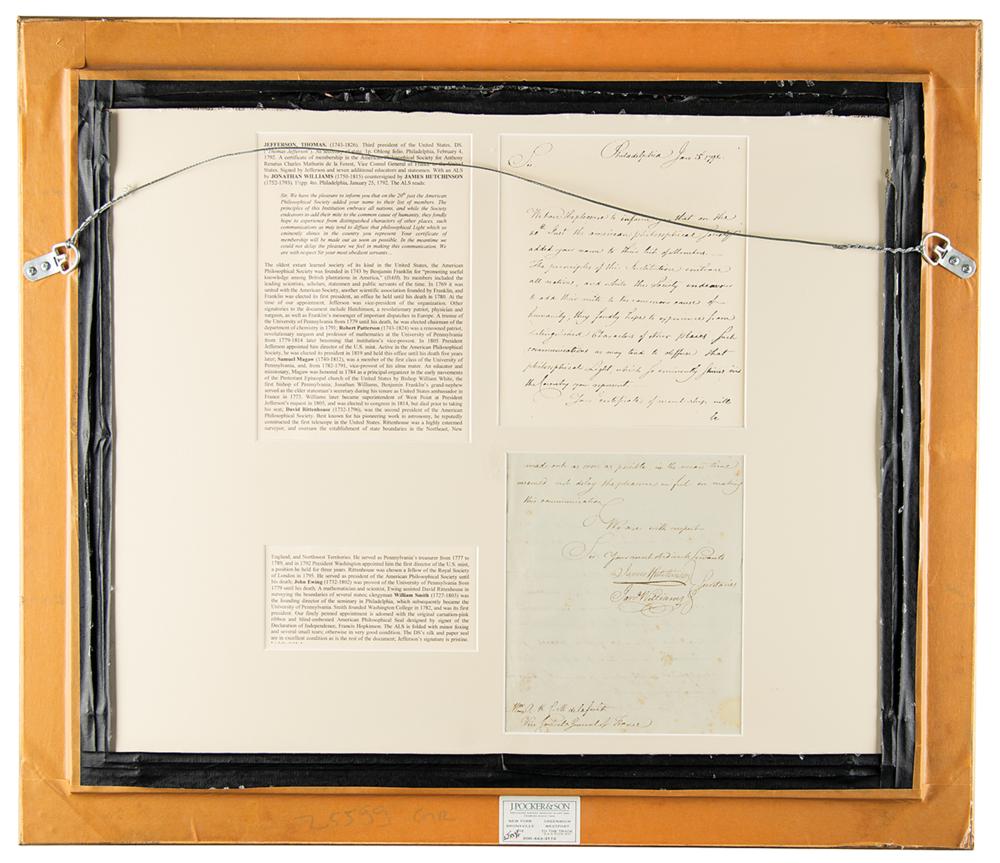 JEFFERSON, THOMAS. (1743-1826). Third president of the United States. DS.
("Thomas Jefferson"). As secretary of state. 1p. Oblong folio. Philadelphia, February 4,
1792. A certificate of membership in the American Philosophical Society for Anthony
Renatus Charles Mathurin de la Forest, Vice Consul General of France to the United
States. Signed by Jefferson and seven additional educators and statesmen. With an ALS
by JONATHAN WILLIAMS (1750-1815) countersigned by JAMES HUTCHINSON
(1752-1793). 1½pp. 4to. Philadelphia, January 25, 1792. The ALS reads:
Sir, We have the pleasure to inform you that on the 20th just the American
Philosophical Society added your name to their list of members. The
principles of this Institution embrace all nations, and while the Society
endeavors to add their mite to the common cause of humanity, they fondly
hope to experience from distinguished characters of other places, such
communications as may tend to diffuse that philosophical Light which so
eminently shines in the country you represent. Your certificate of
membership will be made out as soon as possible. In the meantime we
could not delay the pleasure we feel in making this communication. We
are with respect Sir your most obedient servants...
The oldest extant learned society of its kind in the United States, the American
Philosophical Society was founded in 1743 by Benjamin Franklin for "promoting useful
knowledge among British plantations in America," (DAH). Its members included the
leading scientists, scholars, statesmen and public servants of the time. In 1769 it was
united with the American Society, another scientific association founded by Franklin, and
Franklin was elected its first president, an office he held until his death in 1780. At the
time of our appointment, Jefferson was vice-president of the organization. Other
signatories to the document include Hutchinson, a revolutionary patriot, physician and
surgeon, as well as Franklin's messenger of important dispatches in Europe. A trustee of
the University of Pennsylvania from 1779 until his death, he was elected chairman of the
department of chemistry in 1791; Robert Patterson (1743-1824) was a renowned patriot,
revolutionary surgeon and professor of mathematics at the University of Pennsylvania
from 1779-1814 later becoming that institution's vice-provost. In 1805 President
Jefferson appointed him director of the U.S. mint. Active in the American Philosophical
Society, he was elected its president in 1819 and held this office until his death five years
later; Samuel Magaw (1740-1812), was a member of the first class of the University of
Pennsylvania, and, from 1782-1791, vice-provost of his alma mater. An educator and
missionary, Magaw was honored in 1784 as a principal organizer in the early movements
of the Protestant Episcopal church of the United States by Bishop William White, the
first bishop of Pennsylvania; Jonathan Williams, Benjamin Franklin's grand-nephew
served as the elder statesman's secretary during his tenure as United States ambassador in
France in 1773. Williams later became superintendent of West Point at President
Jefferson's request in 1805, and was elected to congress in 1814, but died prior to taking
his seat; David Rittenhouse (1732-1796), was the second president of the American
Philosophical Society. Best known for his pioneering work in astronomy, he reputedly
constructed the first telescope in the United States. Rittenhouse was a highly esteemed
surveyor, and oversaw the establishment of state boundaries in the Northeast, New
England, and Northwest Territories. He served as Pennsylvania's treasurer from 1777 to
1789, and in 1792 President Washington appointed him the first director of the U.S. mint,
a position he held for three years. Rittenhouse was chosen a fellow of the Royal Society
of London in 1795. He served as president of the American Philosophical Society until
his death; John Ewing (1732-1802) was provost of the University of Pennsylvania from
1779 until his death. A mathematician and scientist, Ewing assisted David Rittenhouse in
surveying the boundaries of several states; clergyman William Smith (1727-1803) was
the founding director of the seminary in Philadelphia, which subsequently became the
University of Pennsylvania. Smith founded Washington College in 1782, and was its first
president. Our finely penned appointment is adorned with the original carnation-pink
ribbon and blind-embossed American Philosophical Seal designed by signer of the
Declaration of Independence, Francis Hopkinson. The ALS is folded with minor foxing
and several small tears; otherwise in very good condition. The DS's silk and paper seal
are in excellent condition as is the rest of the document; Jefferson's signature is pristine.
Philadelphia Jan 25 1792
Sir
We have the pleasure to inform you that on the
20th Inst the american philosophical Society
added your name to their list of Members.
The principles of this Institution embrace
all nations, and while the Society endeavour
to add their mite to the common cause of
humanity, they fondly hope to experience from
distinguished Characters of other places such
communications as may tend to diffuse that
philosophical Light which so eminently shines in
the Country you represent.
Your certificate of membership will
be
made out as soon as possible, in the mean time
we could not delay the pleasure we feel in making
this communication
We are with respect
Sir Your most obedient Servants
James Hutchinson
Secretaries
Jona Williams
A R C M de la forest
Vice Consul General of France
25599 GNR
J. POCKER & SON
NEW YORK GREENWICH
BRONXVILLE WESTPORT
TO THE TRADE